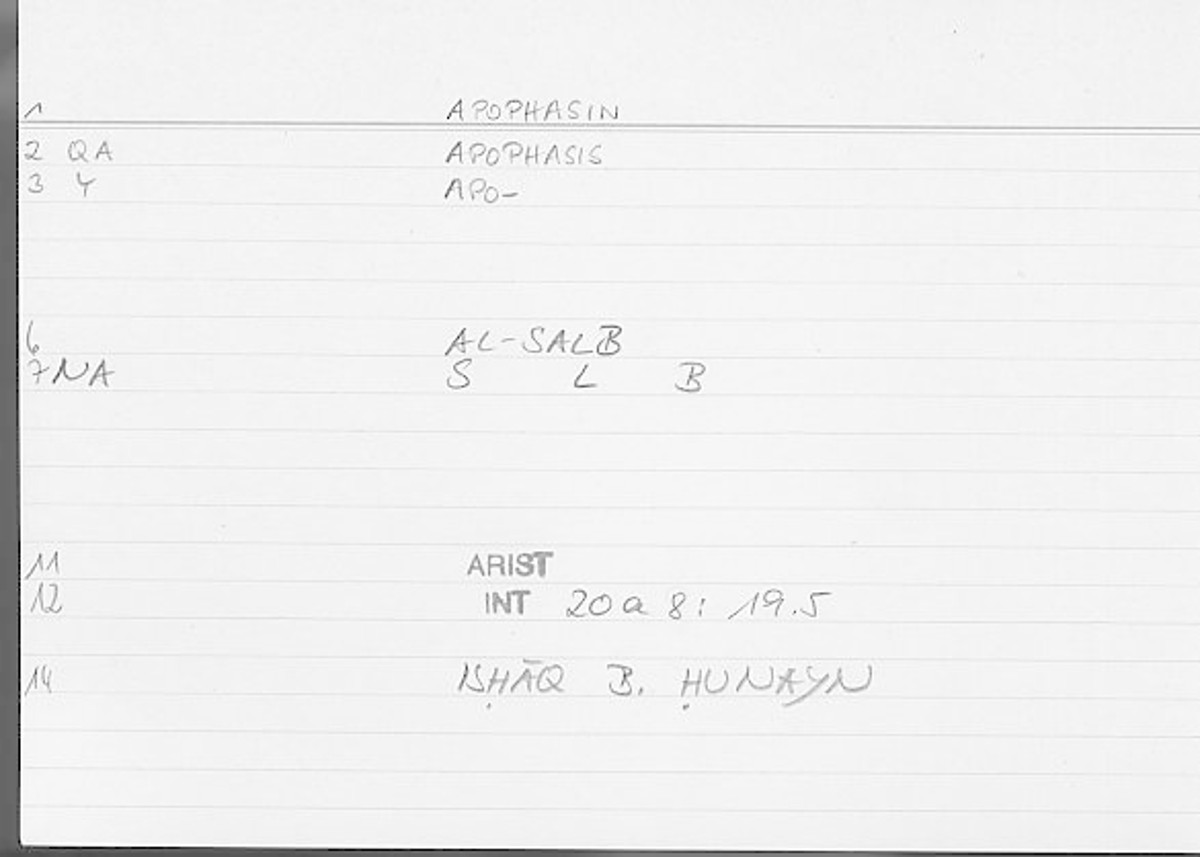 1 APOPHASIN
2 QA APOPHASIS
3 Y APO-
6 AL-SALB
7 NA S L B
11 ARIST
12 INT 20a 8 : 19.5
14 ISḤĀQ B. ḤUNAYN